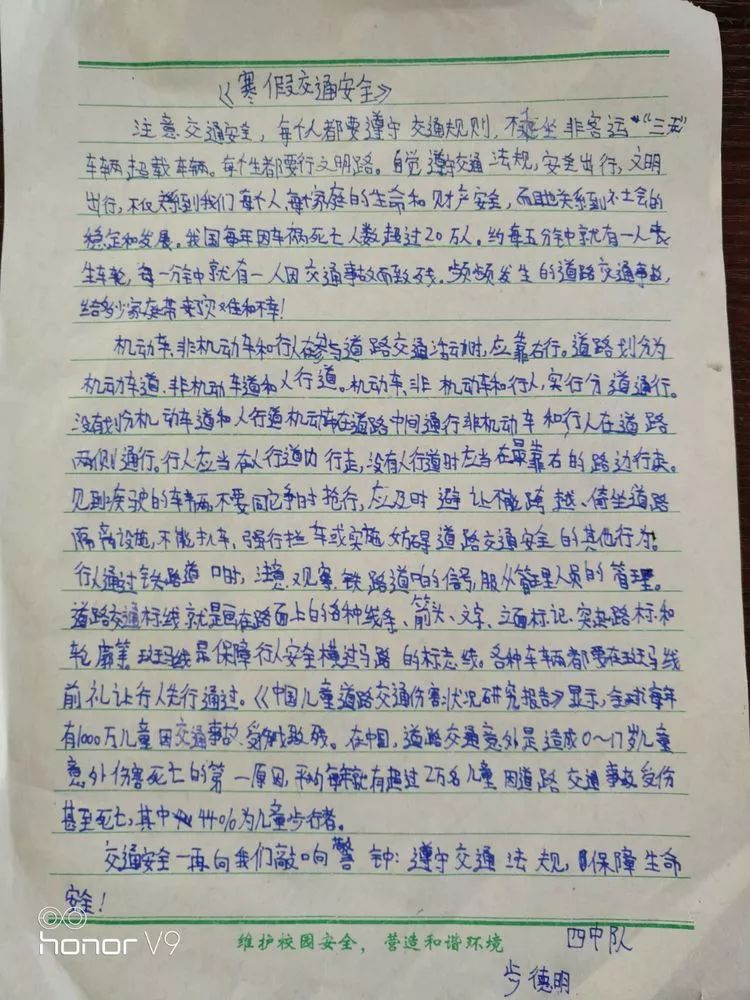 《寒假交通安全》
注意交通安全，每个人都要遵守交通规则，不乘坐非客运"三无"
车辆超载车辆。每个生都要行文明路。自觉遵守交通法规，安全出行，文明
出行，不仅关系到我们每个人每个家庭的生命和财产安全，而且也关系到个社会的
稳定和发展。我国每年因车祸死亡人数超过20万人。约每五分钟就有一人丧
生车轮，每一分钟就有一人因交通事故而致残。频频发生的道路交通事故，
给多少家庭带来了灾难和不幸！
机动车、非机动车和行人在参与道路交通活动时，应靠右行。道路划分为
机动车道、非机动车道和人行道。机动车、非机动车和行人，实行分道通行。
没有划分机动车道和人行道机动车在道路中间通行非机动车和行人在道路
两侧通行。行人应当在人行道内行走，没有人行道时应当在最靠右的路边行走。
见到疾驶的车辆不要同它争时抢行，应及时避让不能跨越、倚坐道路
隔离设施，不能扒车，强行拦车或实施妨碍道路交通安全的其他行为。
行人通过铁路道口时，注意观察铁路道口的信号，服从管理人员的管理。
道路交通标线就是画在路面上的各种线条、箭头、文字、立面标记、突起路标和
轮廓等斑马线是保障行人安全横过马路的标志线。各种车辆都要在斑马线
前礼让行人先行通过。《中国儿童道路交通伤害状况研究报告》显示，全球每年
有1000万儿童因交通事故受伤或致残。在中国，道路交通意外是造成0～17岁儿童
意外伤害死亡的第一原因，平均每年就有超过2万名儿童因道路交通事故受伤
甚至死亡，其中44%为儿童步行者。
交通安全一再向我们敲响警钟：遵守交通法规，保障生命
安全！
维护校园安全，营造和谐环境
四中队
步德明
honor V9